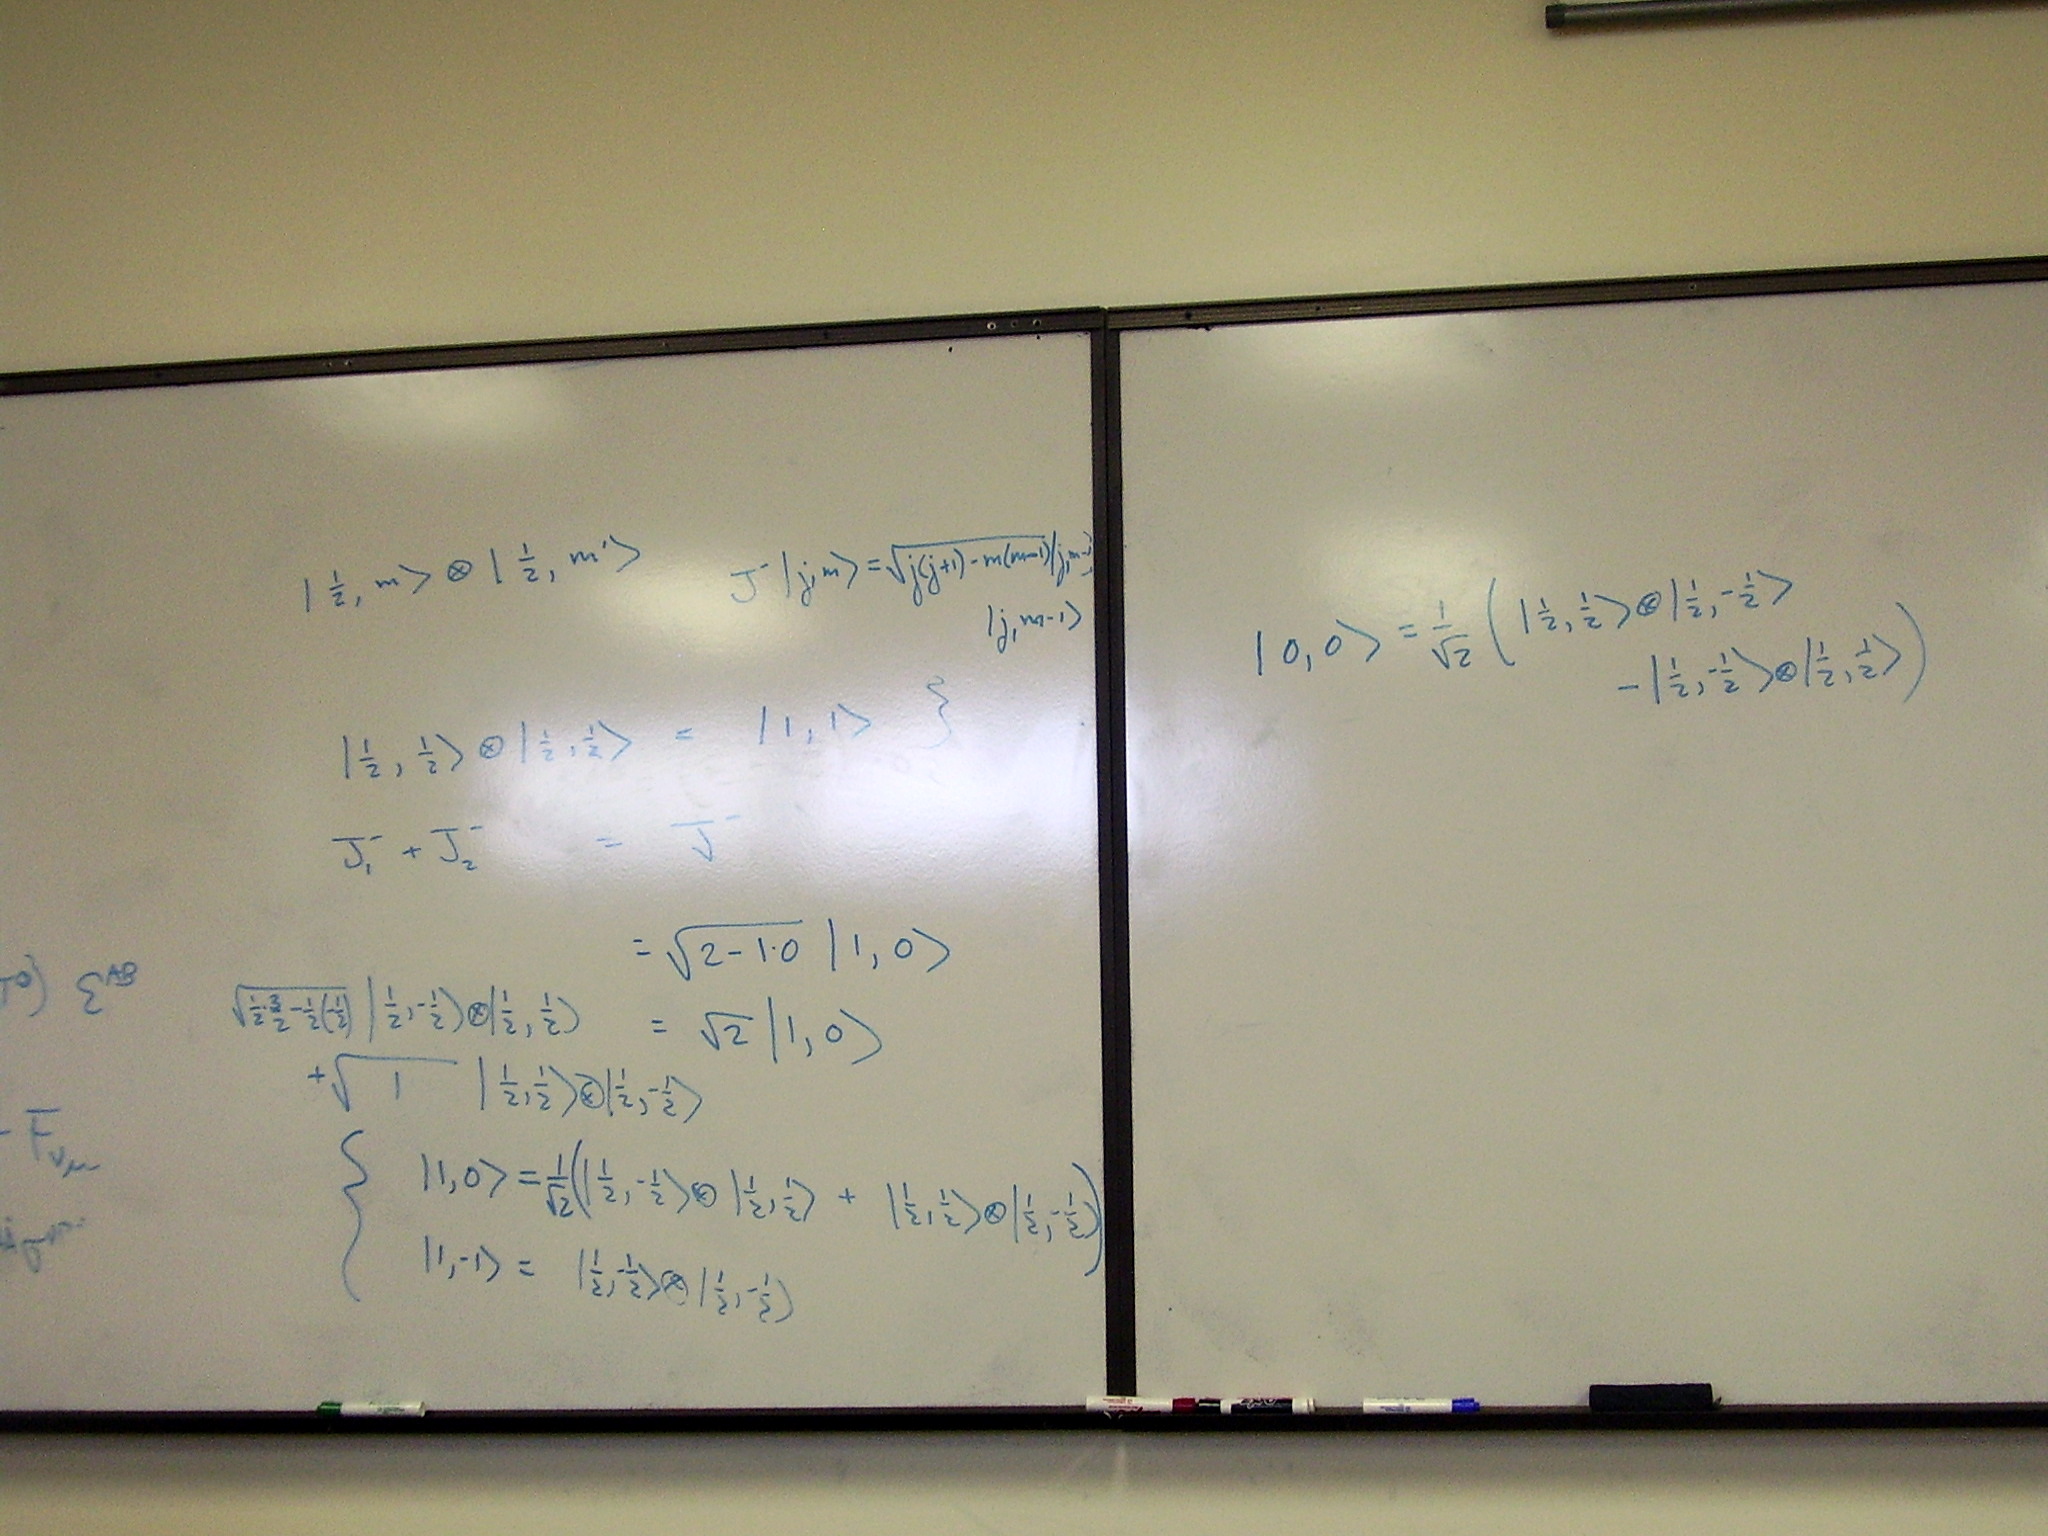 |½, m⟩ ⊗ |½, m'⟩
J⁻ |j,m⟩ = √(j(j+1) - m(m-1)) |j,m-1⟩
|j, m-1⟩
|½, ½⟩ ⊗ |½, ½⟩ = |1, 1⟩ }
J₁⁻ + J₂⁻ = J⁻
= √(2-1·0) |1, 0⟩
√(½·3/2 - ½(-½)) |½, -½⟩ ⊗ |½, ½⟩ = √2 |1, 0⟩
+ √1 |½, ½⟩ ⊗ |½, -½⟩
{ |1,0⟩ = 1/√2 (|½, -½⟩ ⊗ |½, ½⟩ + |½, ½⟩ ⊗ |½, -½⟩)
|1,-1⟩ = |½, -½⟩ ⊗ |½, -½⟩
ε^AB
- F_νμ
|0, 0⟩ = 1/√2 (|½, ½⟩ ⊗ |½, -½⟩
- |½, -½⟩ ⊗ |½, ½⟩)